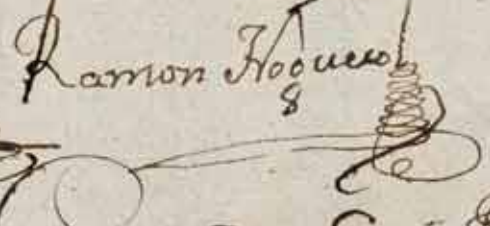 Ramon Noguero